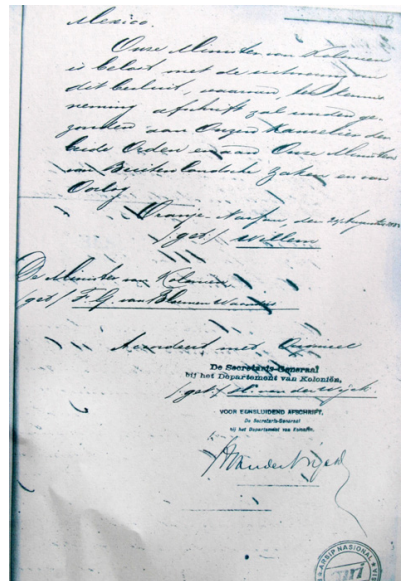 Mexico.
Onze Minister van Koloniën
is belast met de uitvoering van
dit besluit, waarvan, tot kennis
neming afschrift zal worden ge
zonden aan Onzen Kanselier der
beide Orden en aan Onze Ministers
van Buitenlandsche Zaken en van
Oorlog
den
/get/ Willem
De Minister van Koloniën
/get/
Accordeert met
De Secretaris-Generaal
bij het Departement van Koloniën,
/get/ H. van der Wijck
VOOR EENSLUIDEND AFSCHRIFT,
De Secretaris-Generaal
bij het Departement van Koloniën,
vanderWijck
ARSIP NASIONAL